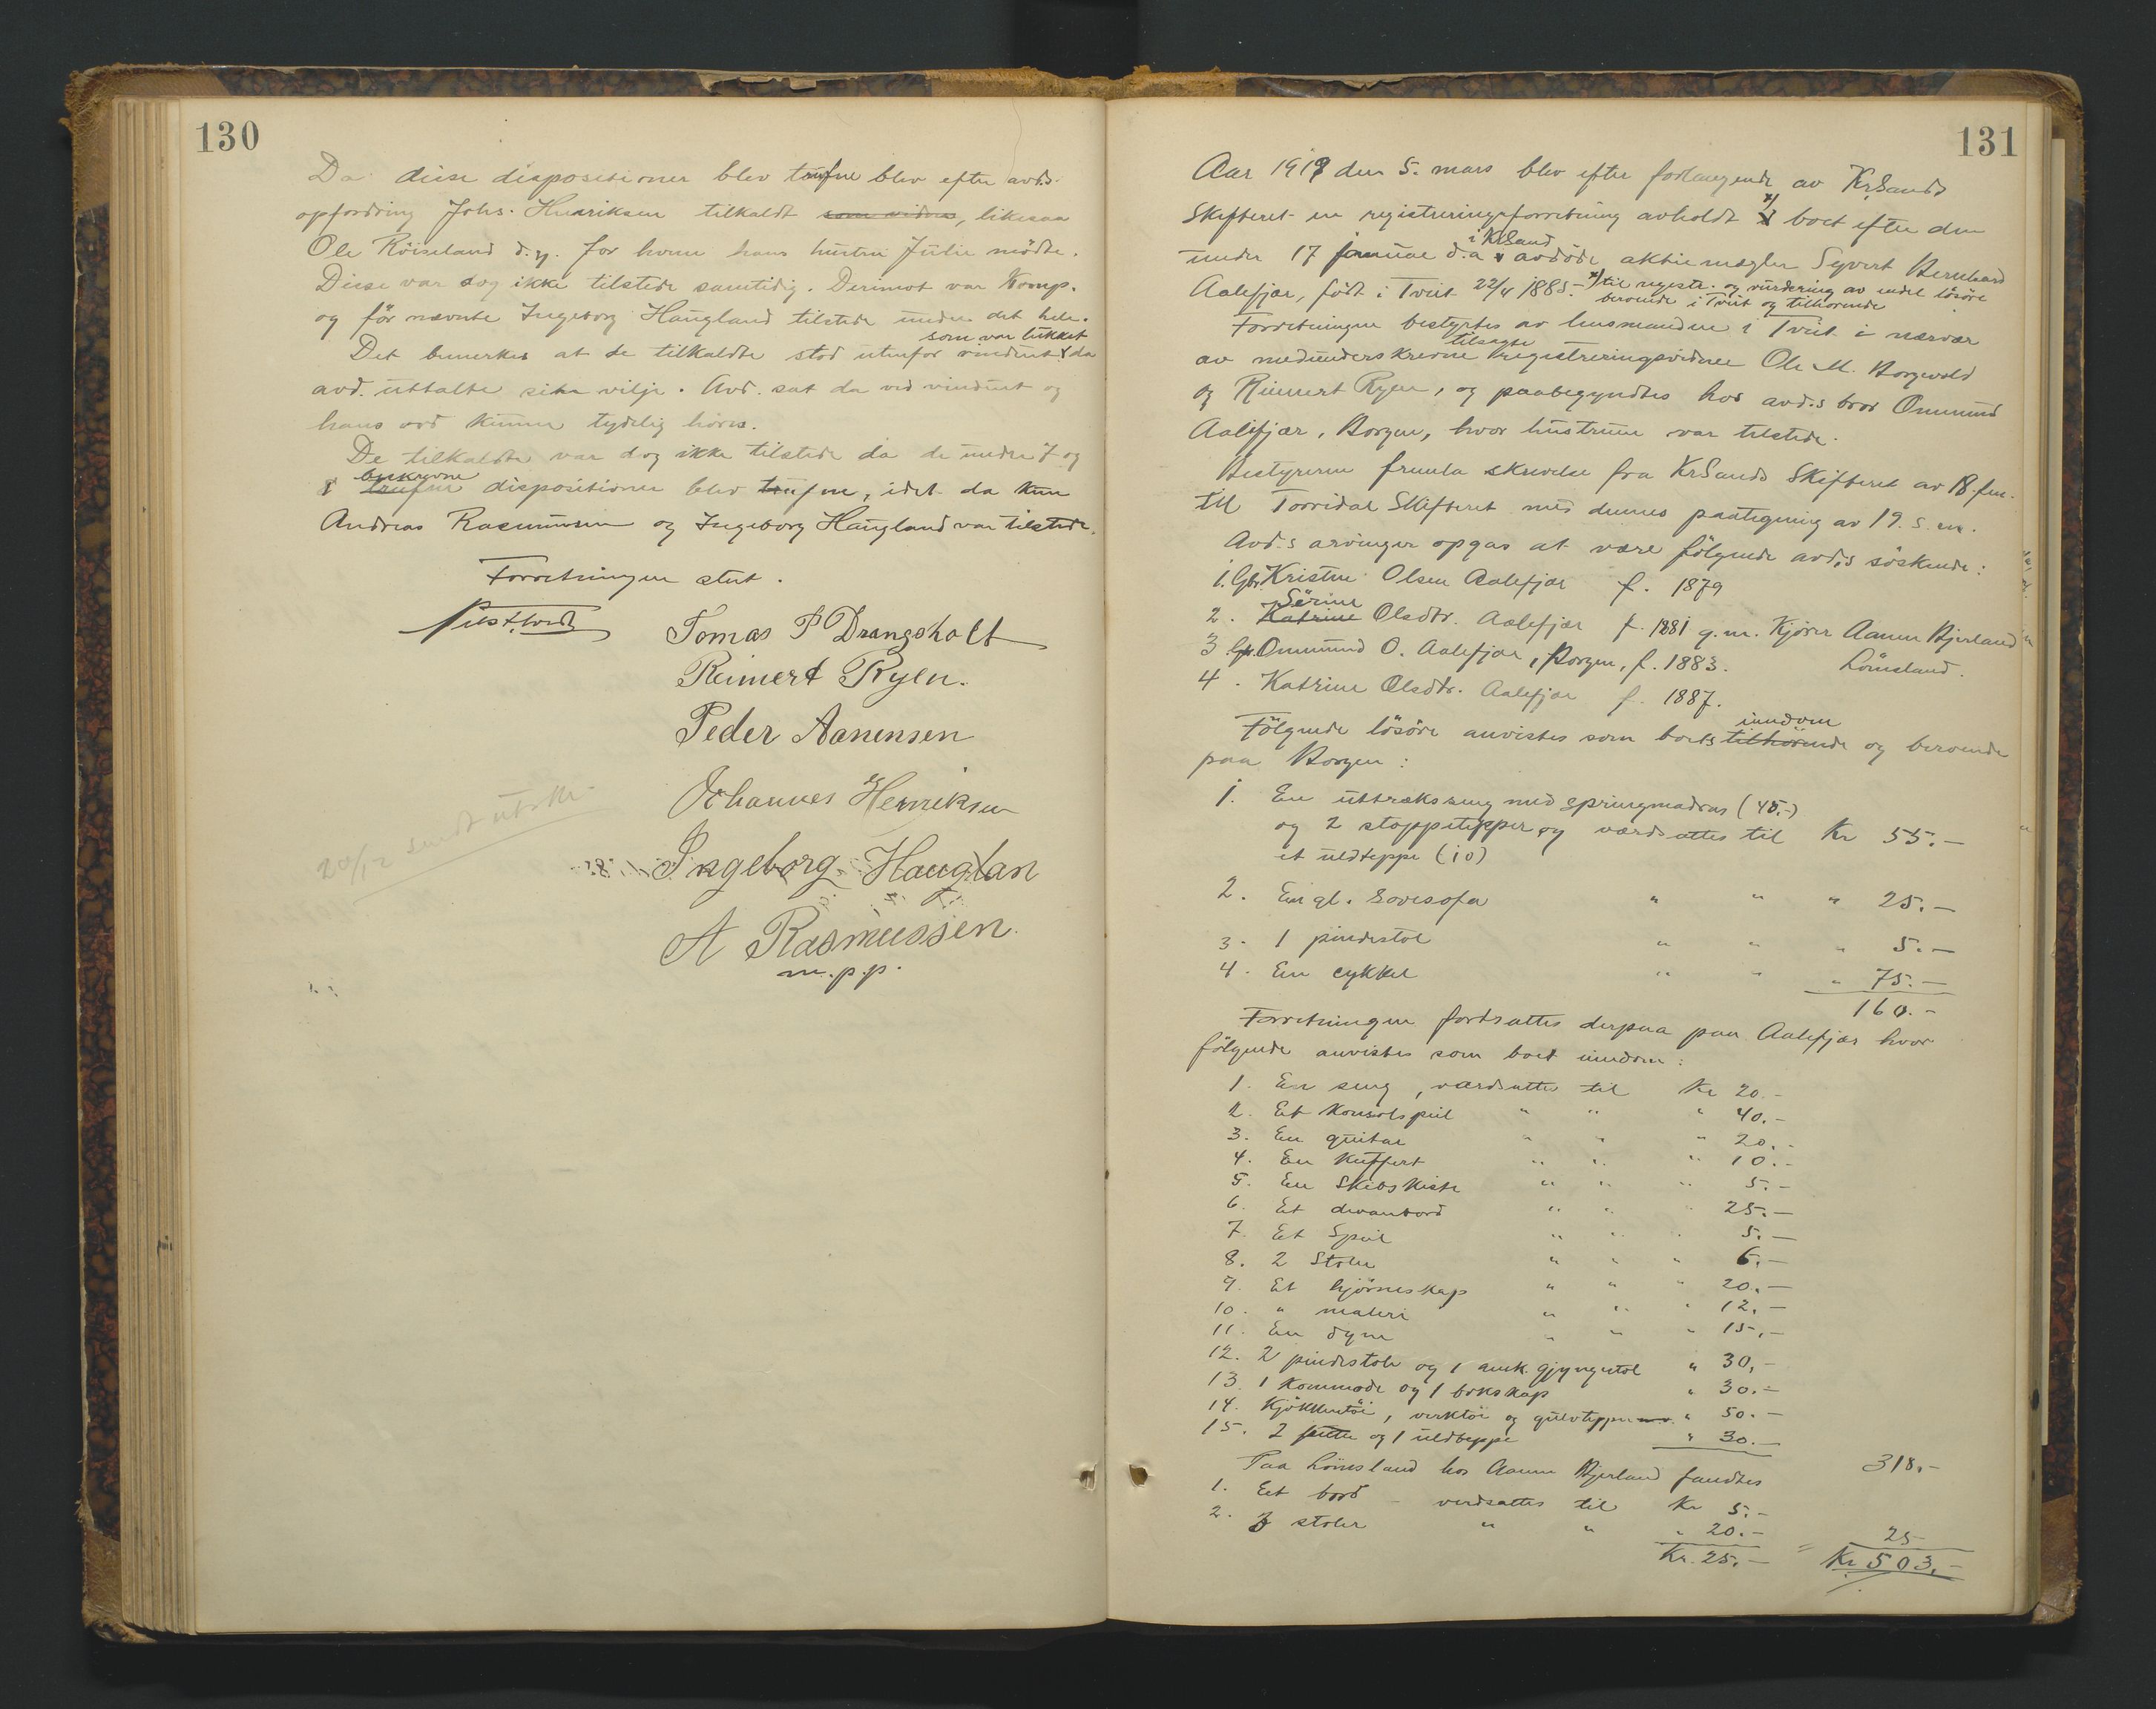 130
Da disse dispositioner blev trufne blev efter avds.
opfordring Johs. Henriksen tilkaldt som vidne, likesaa
Ole Röiseland d.y. for hvem hans hustru Julie mödte.
Disse var dog ikke tilstede samtidig. Derimot var Komp.
og för nævnte Ingeborg Haugland tilstede under det hele.
som var lukket
Det bemerkes at de tilkaldte stod utenfor vinduet da
avd. uttalte sin vilje. Avd. sat da ved vinduet og
hans ord kunne tydelig höres.
De tilkaldte var dog ikke tilstede da de under 7 og
beskrevne
8 trufne dispositioner blev trufne, idet da kun
Andreas Rasmussen og Ingeborg Haugland var tilstede.
Forretningen slut.
Tomas P Drangsholt
Reinert Ryen.
Peder Aanensen
Johannes Henriksen
Ingeborg Hauglan
A Rasmussen
m.p.p.
20/12 sendt utskr.
131
Aar 1919 den 5. mars blev efter forlangende av KrSands
Skifteret en registreringsforretning avholdt x) i boet efter den
i KrSand
under 17 januar d.a. avdöde aktiemægler Syvert Bernhard
Aalefjær, födt i Tveit 22/4 1885.- x) til registr. og vurdering av endel lösöre
beroende i Tveit og tilhörende
Forretningen bestyrtes av lensmanden i Tveit i nærvær
tilsagte
av medunderskrevne registreringsvidner Ole M. Borgevold
og Reinert Ryen, og paabegyndtes hos avd.s bror Ommund
Aalefjær, Borgen, hvor hustruen var tilstede.
Bestyreren fremla skrivelse fra KrSands Skifteret av 18. febr.
til Torridal Skifteret med dennes paategning av 19. s.m.
Avd.s arvinger opgas at være fölgende avd.s söskende:
1. Gbr. Kristen Olsen Aalefjær f. 1879
Serine
2. Katrine Olsdtr. Aalefjær f. 1881 g.m. Kjörer Aanen Bjerland
Lömsland.
3. Gbr. Ommund O. Aalefjær, Borgen, f. 1883.
4. Katrine Olsdtr. Aalefjær f. 1887.
eiendom
Fölgende lösöre anvistes som boets tilhörende og beroende
paa Borgen:
1. En uttræksseng med springmadras (45.-)
og 2 stoppetepper og værdsattes til Kr 55.-
et uldteppe (10)
2. En gl. sovesofa " " " 25.-
3. 1 pindestol " " " 5.-
4. En cykkel " " " 75.-
160.-
Forretningen fortsattes derpaa paa Aalefjær hvor
fölgende anvistes som boets eiendom:
1. En seng, værdsattes til Kr 20.-
2. Et Konsolspeil " " " 40.-
3. En guitar " " " 20.-
4. En Kuffert " " " 10.-
5. En Skibskiste " " " 5.-
6. Et divanbord " " " 25.-
7. Et Speil " " " 5.-
8. 2 Stoler " " " 6.-
9. Et hjörneskap " " " 20.-
10. " maleri " " " 12.-
11. En dyne " " " 15.-
12. 2 pindestole og 1 amk. gjyngestol " 30,-
13. 1 Kommode og 1 bokskap " 30.-
14. Kjökkentöi, verktöi og gulvteppe " 50.-
15. 2 putter og 1 uldteppe " 30.-
318.-
Paa Lömsland hos Aanen Bjerland fandtes
1. Et bord - verdsattes til Kr 5.-
2. stoler " " " 20.-
Kr. 25.- = 25
Kr 503.-